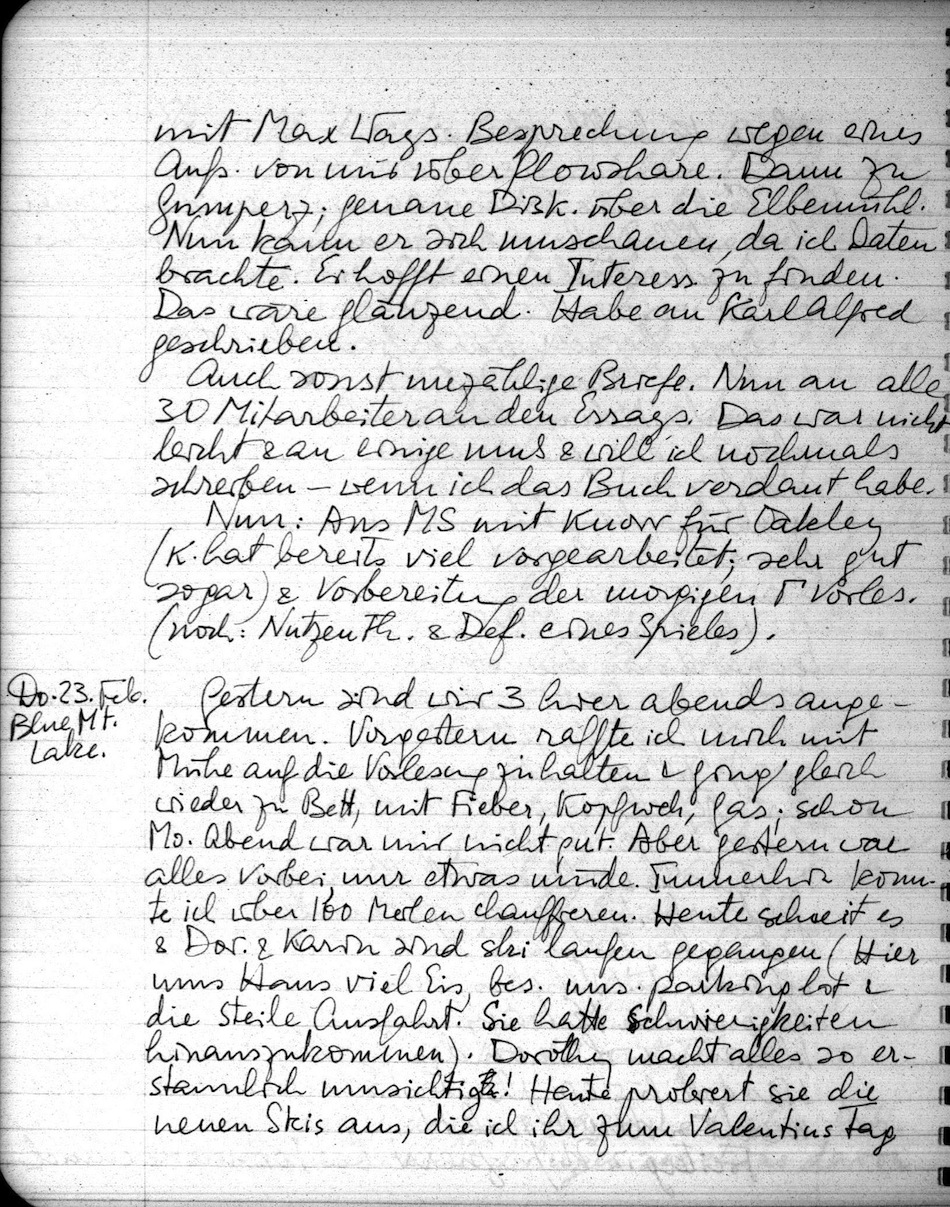 mit Max Ways. Besprechung wegen eines
Aufs. von mir über Plowshare. Dann zu
Gumperz; genaue Disk. über die Elbemühl.
Nun kann er sich umschauen, da ich Daten
brachte. Er hofft einen Interess. zu finden.
Das wäre glänzend. Habe an Karl Alfred
geschrieben.
Auch sonst unzählige Briefe. Nun an alle
30 Mitarbeiter an den Essays. Das war nicht
leicht & an einige muß & will ich nochmals
schreiben – wenn ich das Buch verdaut habe.
Nun: Ans MS mit Knorr für Oakley
(K. hat bereits viel vorgearbeitet; sehr gut
sogar) & Vorbereitung der morgigen Γ Vorles.
(noch: Nutzenth. & Def. eines Spieles).
Do. 23. Feb.
Blue Mt.
Lake.
Gestern sind wir 3 hier abends ange-
kommen. Vorgestern raffte ich mich mit
Mühe auf die Vorlesung zu halten & ging gleich
wieder zu Bett, mit Fieber, Kopfweh, Gas; schon
Mo. Abend war mir nicht gut. Aber gestern war
alles vorbei, nur etwas müde. Immerhin konn-
te ich über 100 Meilen chauffieren. Heute schneit es
& Dor. & Karin sind ski laufen gegangen (Hier
ums Haus viel Eis, bes. uns. parking lot &
die steile Ausfahrt. Sie hatte Schwierigkeiten
hinauszukommen). Dorothy macht alles so er-
staunlich umsichtig! Heute probiert sie die
neuen Skis aus, die ich ihr zum Valentins Tag